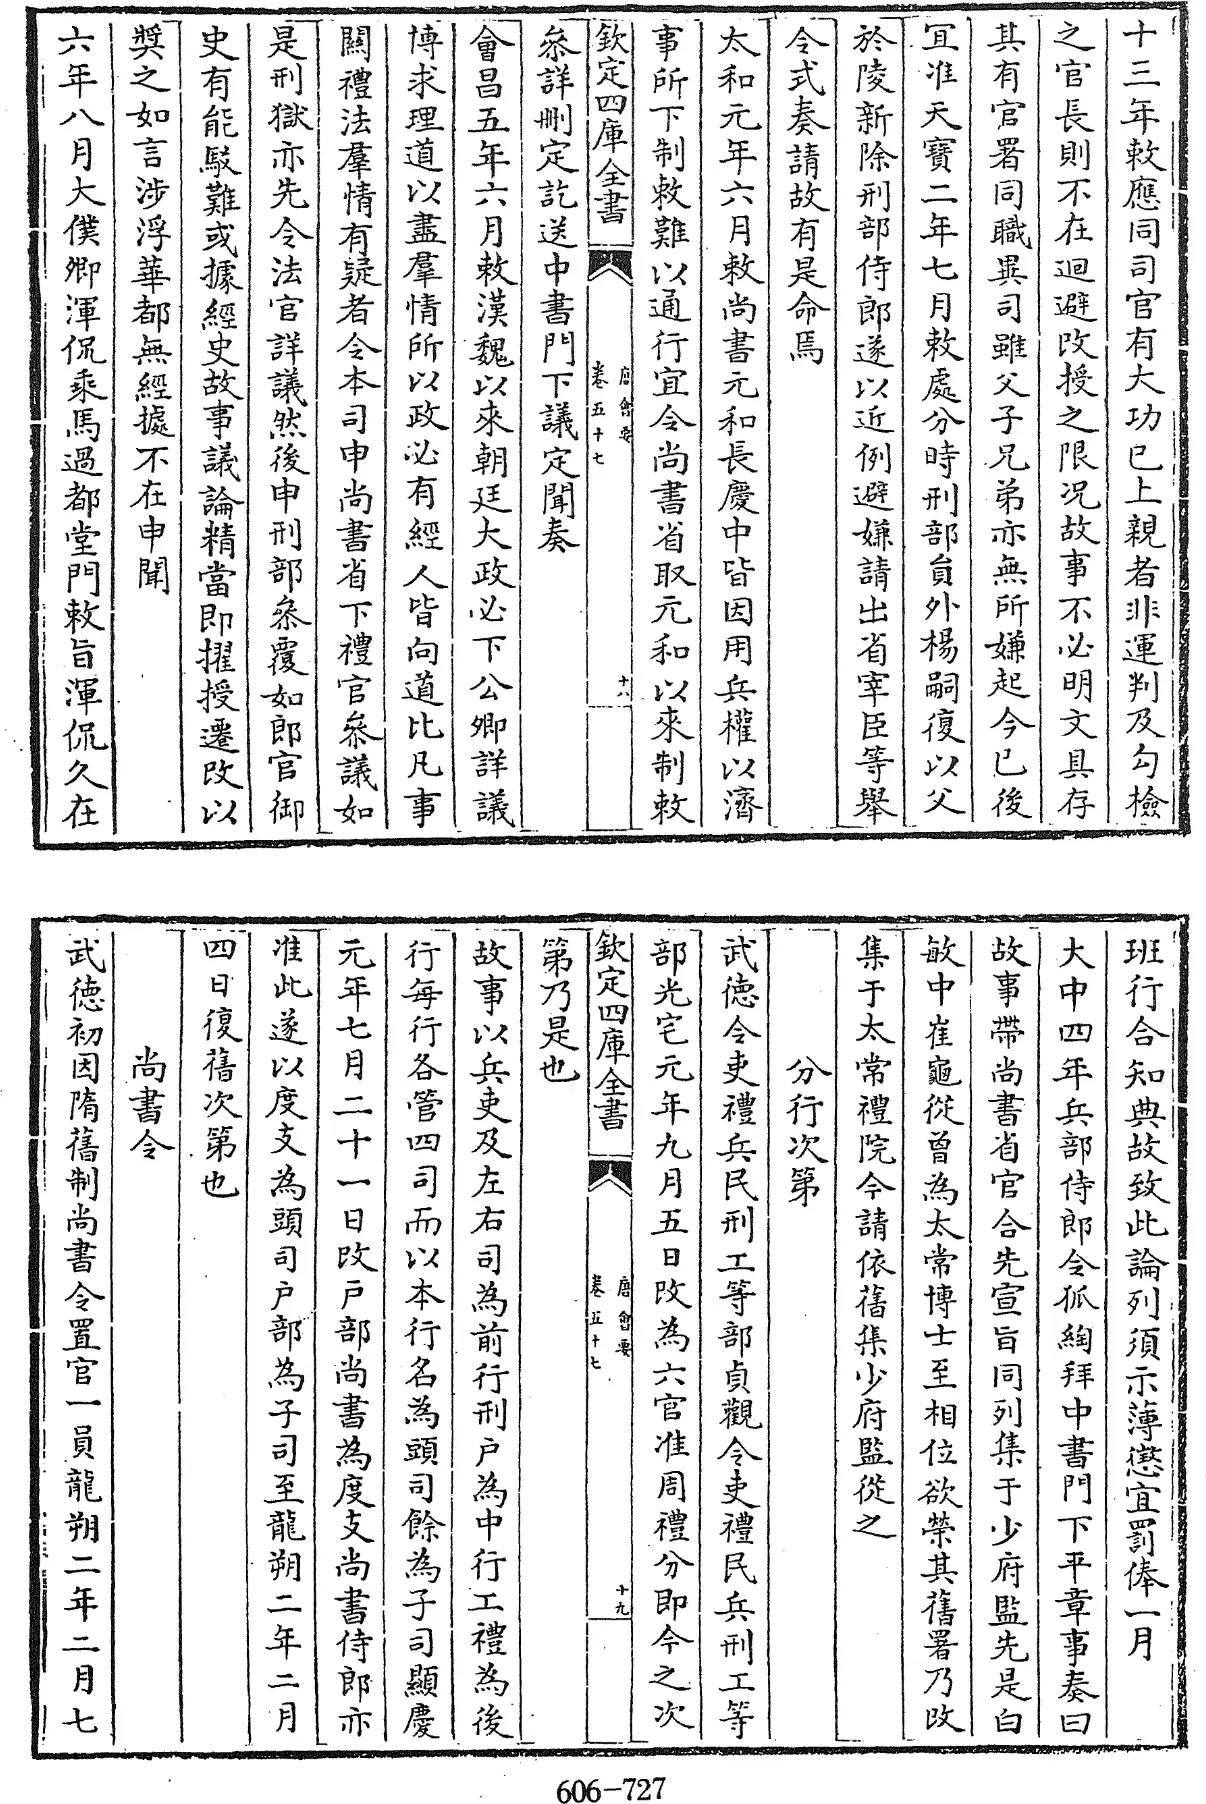 十三年敕應同司官有大功已上親者非運判及勾檢
之官長則不在迴避改授之限况故事不必明文具存
其有官署同職異司雖父子兄弟亦無所嫌起今已後
宜准天寶二年七月敕處分時刑部員外楊嗣復以父
於陵新除刑部侍郎遂以近例避嫌請出省宰臣等舉
令式奏請故有是命焉
太和元年六月敕尚書元和長慶中皆因用兵權以濟
事所下制敕難以通行宜令尚書省取元和以來制敕
欽定四庫全書
唐會要
卷五十七
十八
叅詳刪定訖送中書門下議定聞奏
會昌五年六月敕漢魏以來朝廷大政必下公卿詳議
博求理道以盡羣情所以政必有經人皆向道比凡事
關禮法羣情有疑者令本司申尚書省下禮官叅議如
是刑獄亦先令法官詳議然後申刑部叅覆如郎官御
史有能駁難或據經史故事議論精當即擢授遷改以
奬之如言涉浮華都無經據不在申聞
六年八月大僕卿渾侃乘馬過都堂門敕旨渾侃久在
班行合知典故致此論列須示薄懲宜罰俸一月
大中四年兵部侍郎令狐綯拜中書門下平章事奏曰
故事帶尚書省官合先宣旨同列集于少府監先是白
敏中崔龜從曾為太常博士至相位欲榮其舊署乃改
集于太常禮院今請依舊集少府監從之
分行次第
武德令吏禮兵民刑工等部貞觀令吏禮民兵刑工等
部光宅元年九月五日改為六官准周禮分即今之次
欽定四庫全書
唐會要
卷五十七
十九
第乃是也
故事以兵吏及左右司為前行刑户為中行工禮為後
行每行各管四司而以本行名為頭司餘為子司顯慶
元年七月二十一日改户部尚書為度支尚書侍郎亦
准此遂以度支為頭司户部為子司至龍朔二年二月
四日復舊次第也
尚書令
武德初因隋舊制尚書令置官一員龍朔二年二月七
606-727